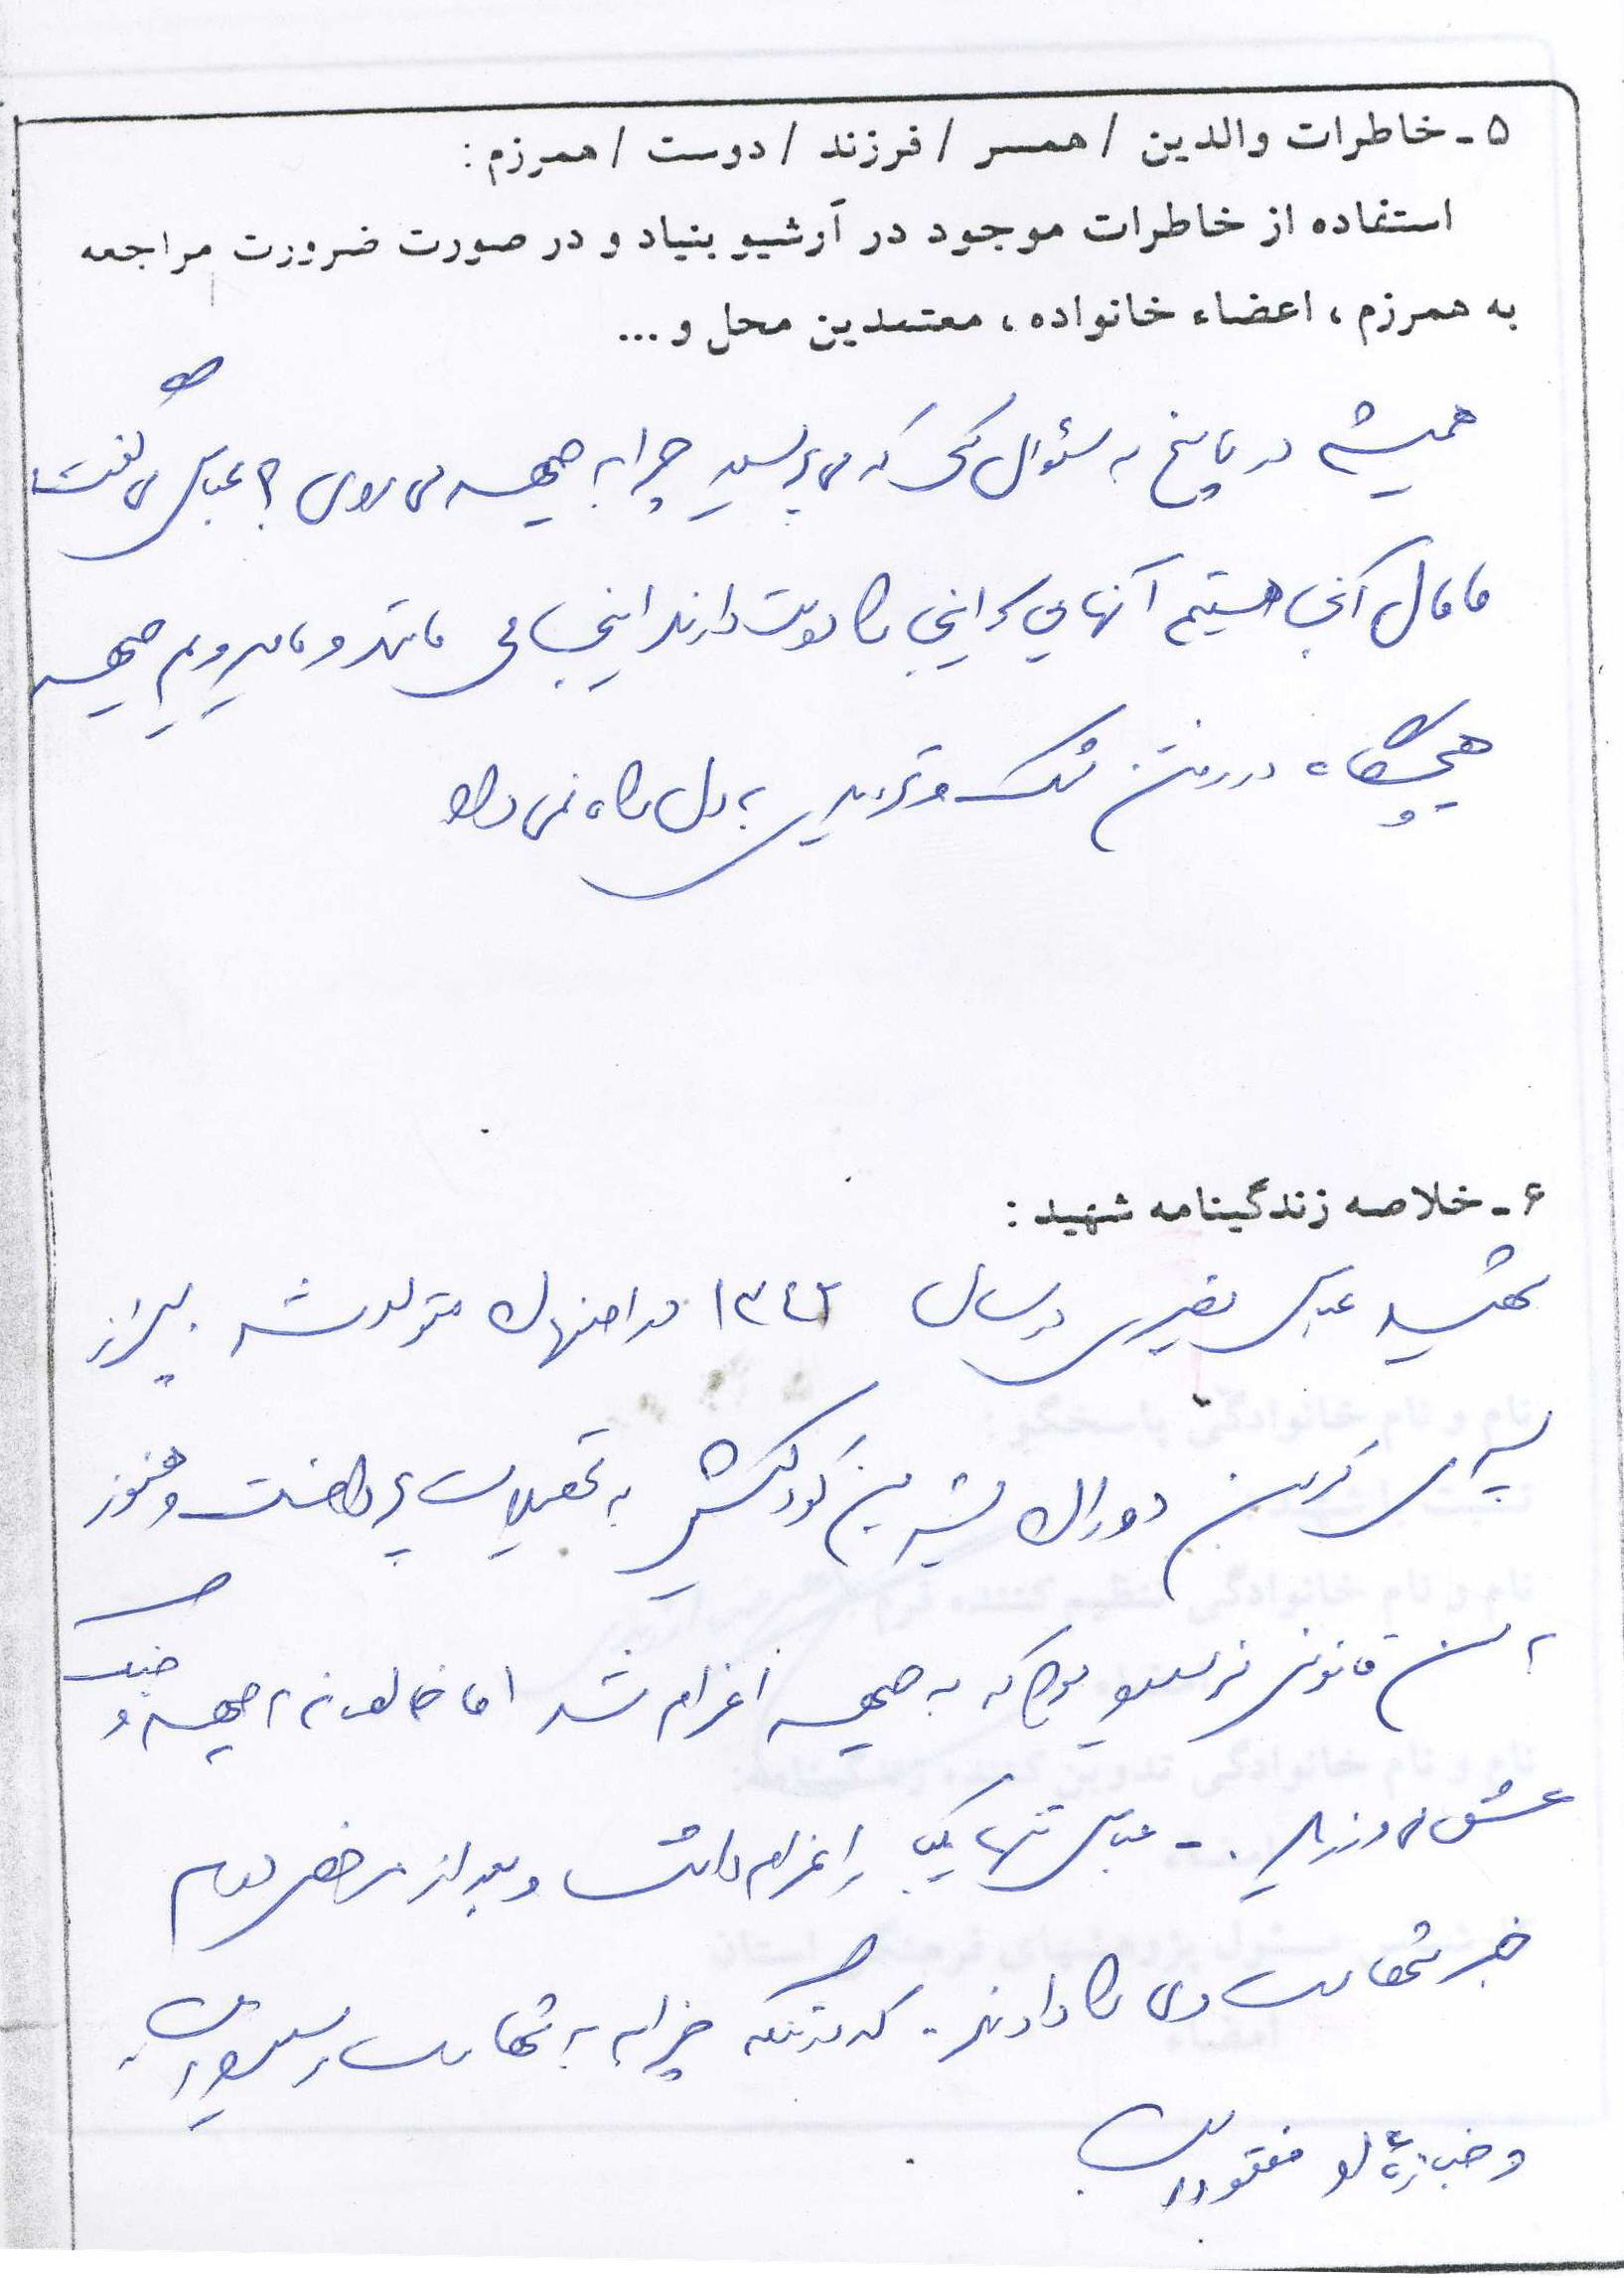 ۵ - خاطرات والدین / همسر / فرزند / دوست / همرزم :
استفاده از خاطرات موجود در آرشیو بنیاد و در صورت ضرورت مراجعه
به همرزم ، اعضاء خانواده ، معتمدین محل و ...
همیشه در پاسخ به سئوال کسی که می پرسید چرا به جبهه می روی ؟ عباس می گفت که
ما مال آنجا هستیم آنهایی که اینجا را دوست دارند اینجا می مانند و ما میرویم جبهه
و هیچگاه در رفتن شک و تردیدی به دل راه نمی داد
۶ - خلاصه زندگینامه شهید :
شهید عباس نصیری در سال ۱۳۴۲ در اصفهان متولد شد پس از
سپری کردن دوران شیرین کودکیش به تحصیلات پرداخت و هنوز
به سن قانونی نرسیده بود که به جبهه اعزام شد اما خالصانه به جبهه و جنگ
عشق می ورزید . - عباس تنها یکبار اعزام داشت و بعد از مرخصی دوم
خبر شهادت وی را دادند . که در تنگه چزابه به شهادت رسیده است
و جنازه او مفقود است